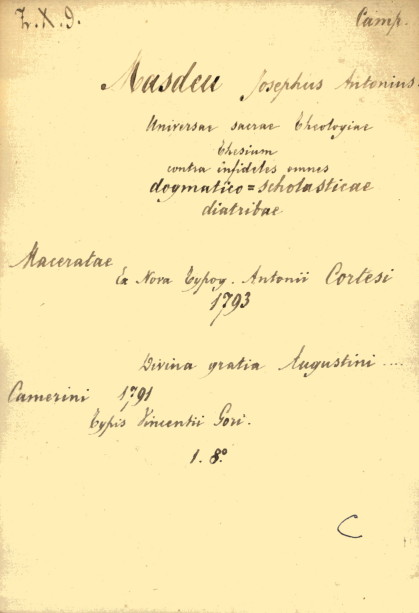 Z. X. 9. Camp.
Masdeu Josephus Antonius.
Universae sacrae Theologiae
Thesium
contra infideles omnes
dogmatico=scholasticae
diatribae
Maceratae
Ex Nova Typog. Antonii Cortesi
1793
Divina gratia Augustini ....
Camerini 1791
Typis Vincentii Gori.
1. 8º
C